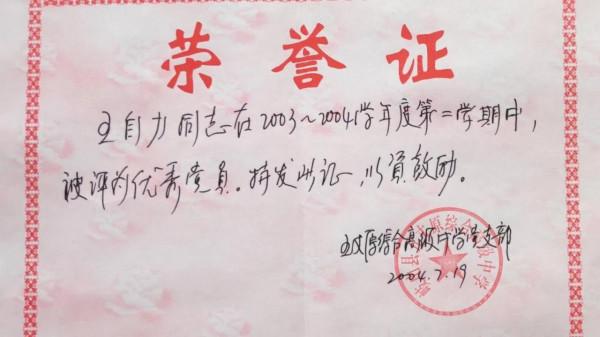 荣誉证
王自力同志在2003~2004学年度第二学期中，
被评为优秀党员。特发此证，以资鼓励。
原综合高级中学党支部
2004.7.19